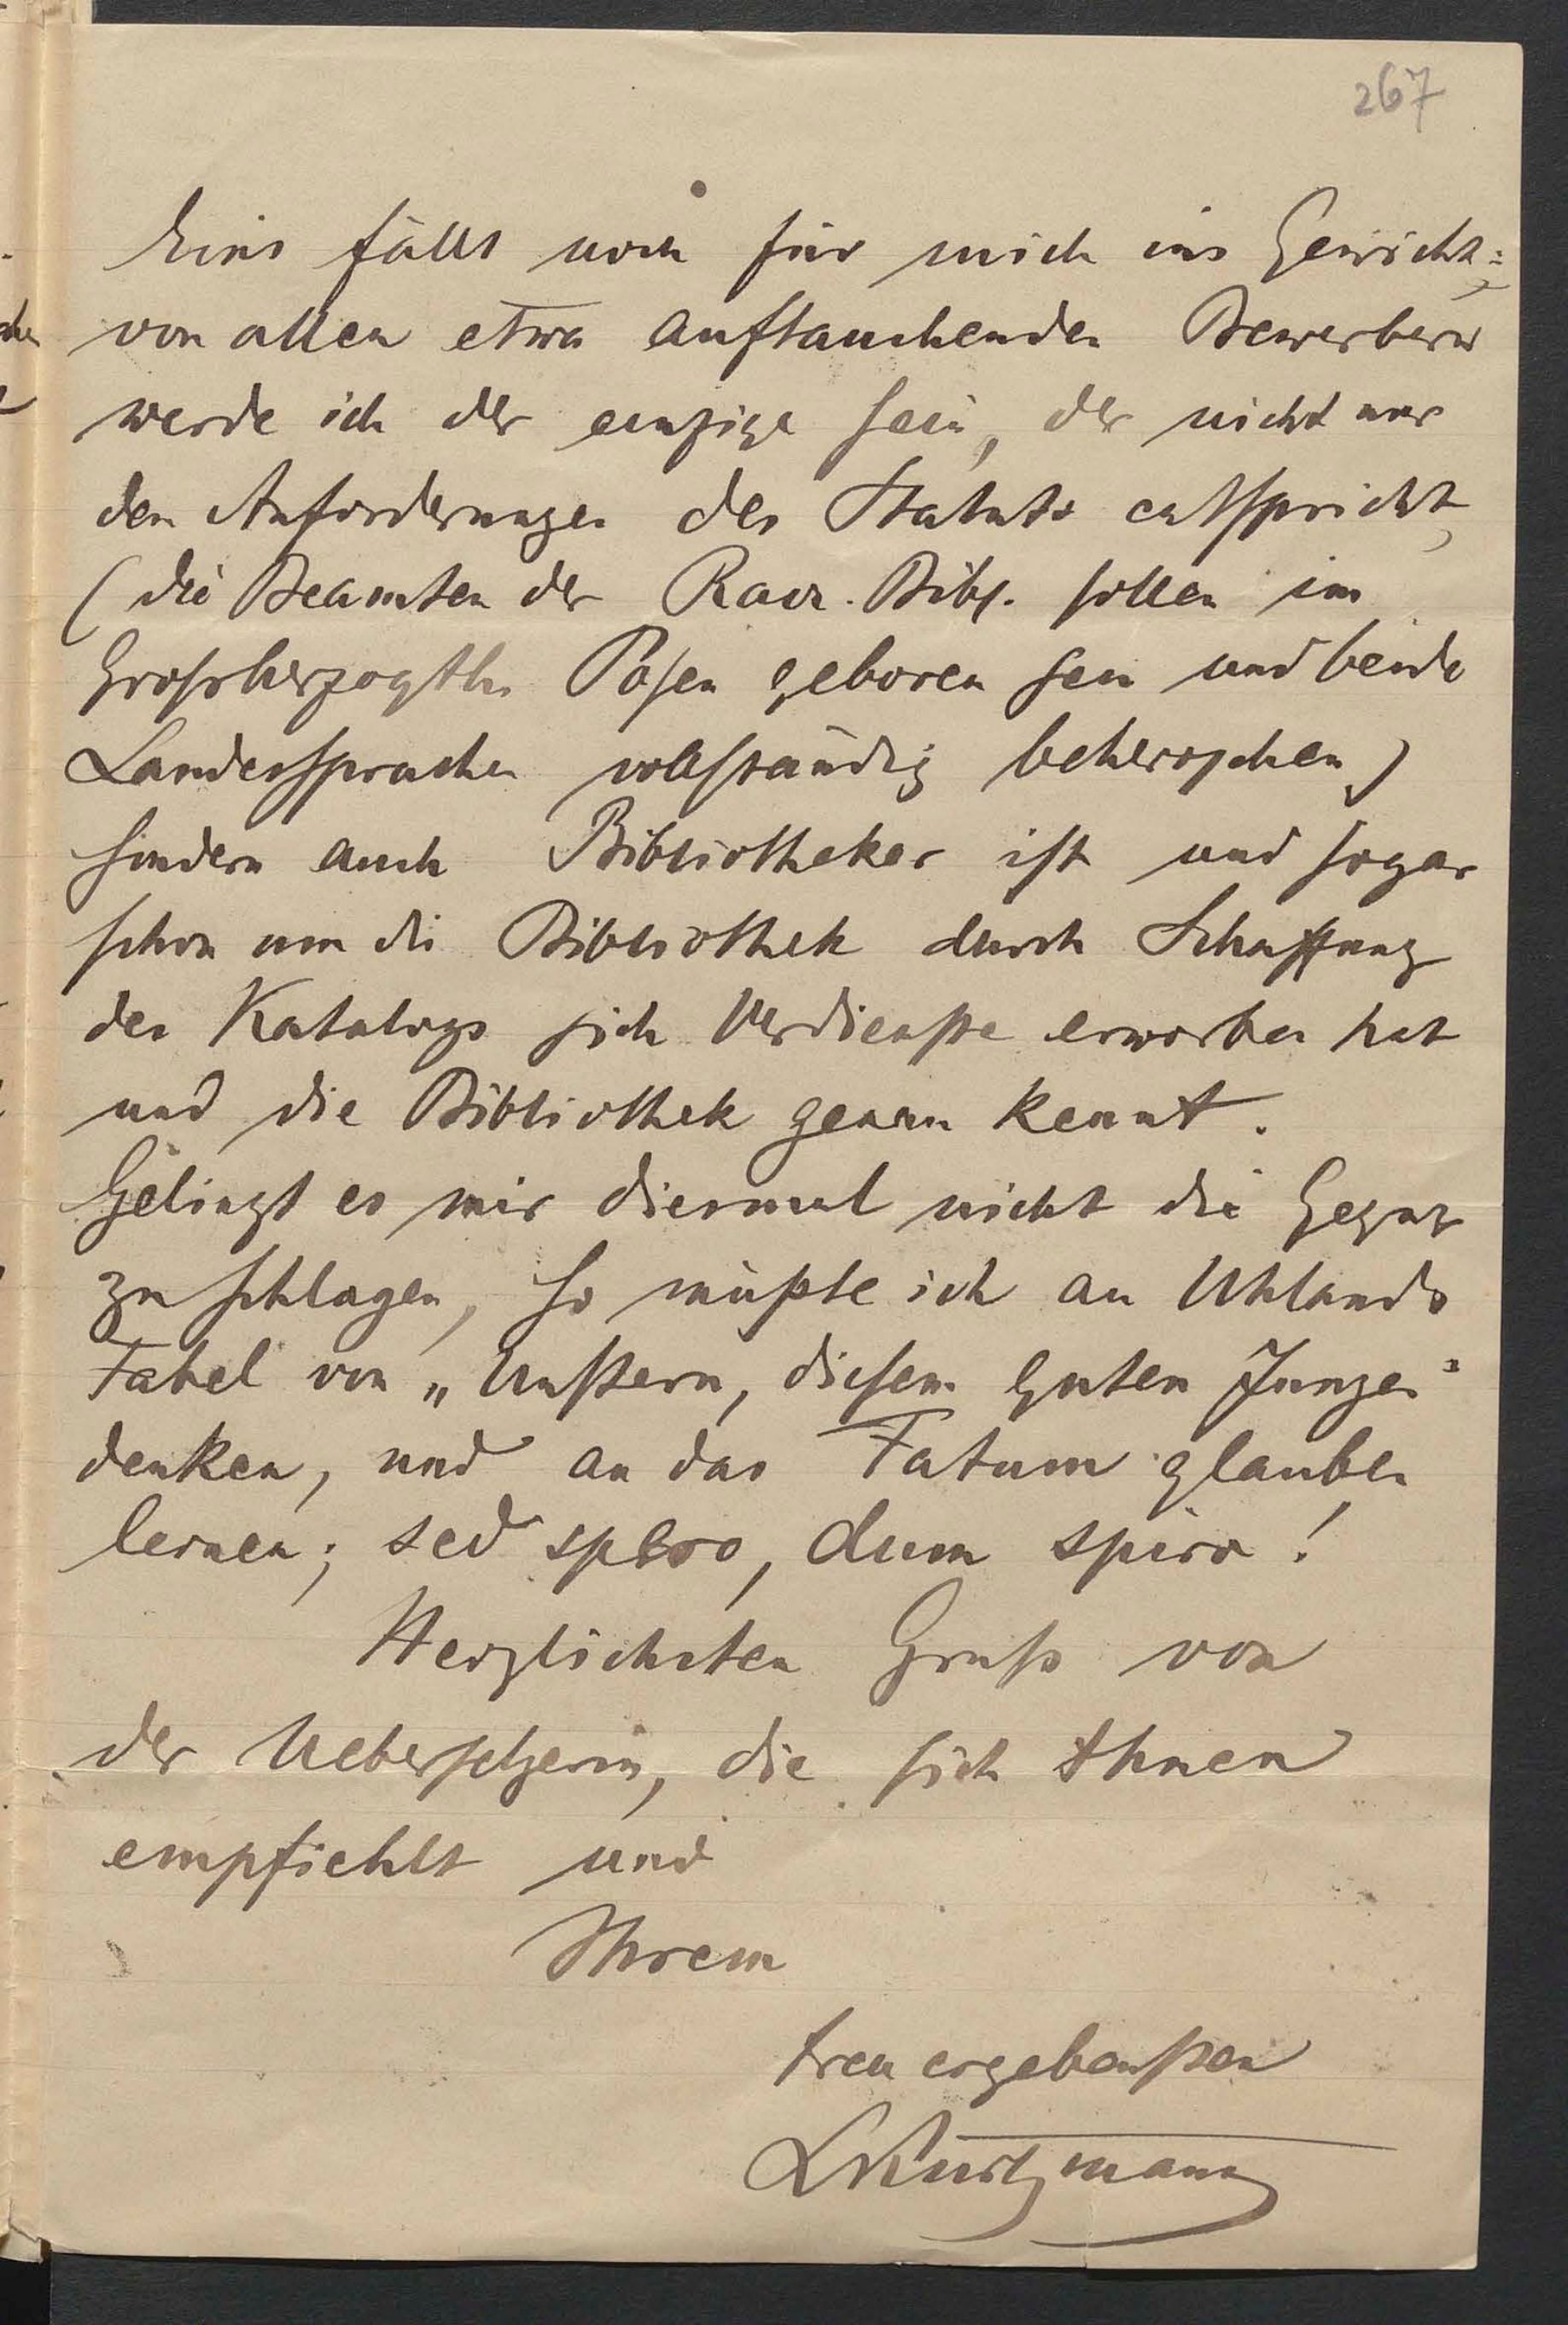 267
Eins fällt noch für mich ins Gewicht:
von allen etwa auftauchenden Bewerbern
werde ich der einzige sein, der nicht nur
den Anforderungen des Statuts entspricht,
(die Beamten der Racz. Bibl. sollen im
Großherzogth. Posen geboren sein und beide
Landessprachen vollständig beherrschen)
sondern auch Bibliothekar ist und sogar
schon um die Bibliothek durch Schaffung
des Katalogs sich Verdienste erworben hat
und die Bibliothek genau kennt.
Gelingt es mir diesmal nicht die Gegner
zu schlagen, so müßte ich an Uhlands
Fabel von „Unstern, diesem guten Jungen“
denken, und an das Fatum glauben
lernen; sed spero, dum spiro!
Herzlichsten Gruß von
der Uebersetzerin, die sich Ihnen
empfiehlt und
Ihrem
treu ergebensten
LKurtzmann